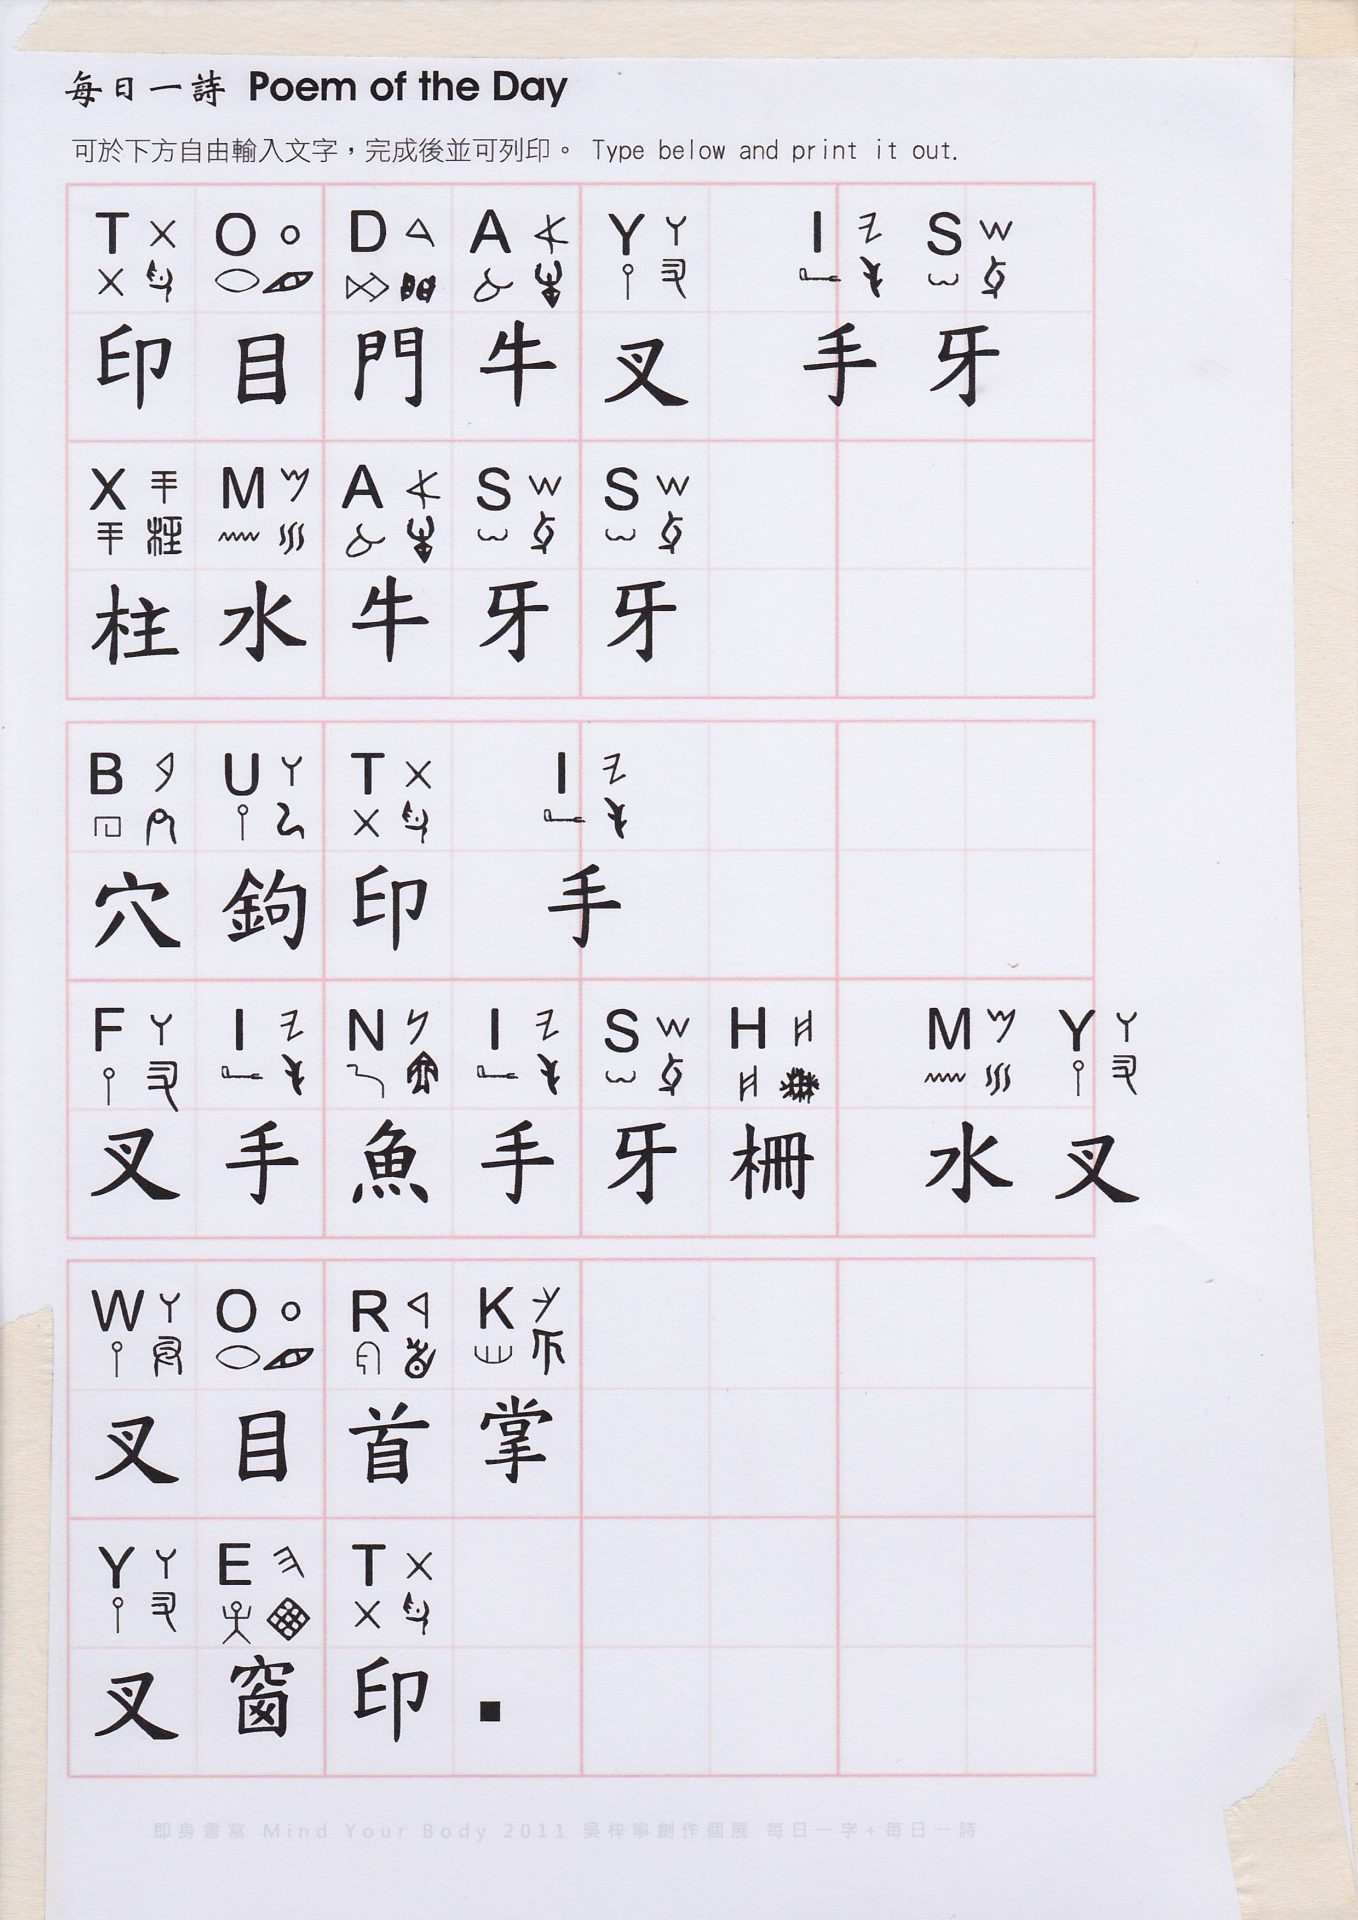 每日一詩 Poem of the Day
可於下方自由輸入文字，完成後並可列印。 Type below and print it out.
T O D A Y I S
印 目 門 牛 叉 手 牙
X M A S S
柱 水 牛 牙 牙
B U T I
穴 鉤 印 手
F I N I S H M Y
叉 手 魚 手 牙 柵 水 叉
W O R K
叉 目 首 掌
Y E T
叉 窗 印 .
即身書寫 Mind Your Body 2011 吳梓寧創作個展 每日一字+每日一詩